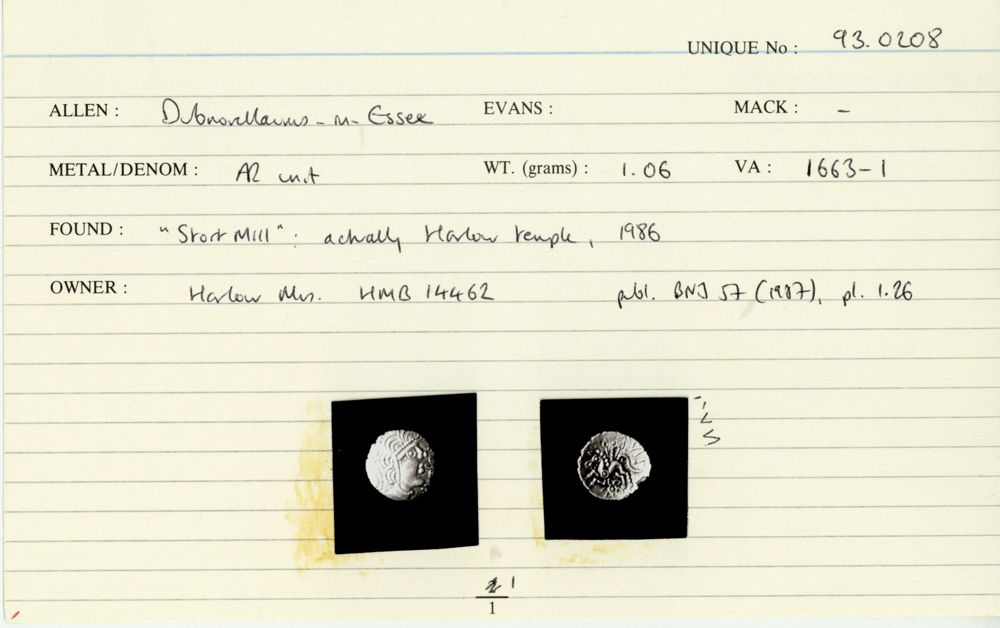 UNIQUE No : 93.0208
ALLEN : Dubnovellaunus-in-Essex EVANS : MACK : -
METAL/DENOM : AR unit WT. (grams) : 1.06 VA : 1663-1
FOUND : "Stort Mill": actually Harlow temple, 1986
OWNER : Harlow Mus. HMB 14462 publ. BNJ 57 (1987), pl. 1.26
1
1